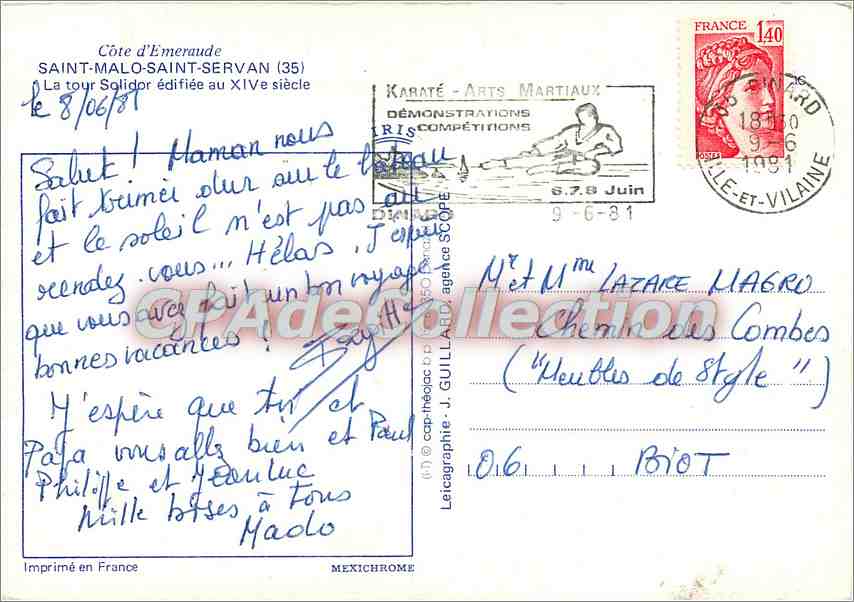 Côte d'Emeraude
SAINT-MALO-SAINT-SERVAN (35)
La tour Solidor édifiée au XIVe siècle
le 8/06/81
Salut ! Maman nous
fait trimer dur sur le bateau
et le soleil n'est pas au
rendez-vous... Hélas. J'espère
que vous avez fait un bon voyage
bonnes vacances !
J'espère que toi et
Papa vous allez bien et Paul
Philippe et Jean Luc
Mille bises à Tous
Mado
Imprimé en France
MEXICHROME
IRIS
cap-théojac
Leicagraphie - J. GUILLARD, agence SCOPE
KARATÉ - ARTS MARTIAUX
DÉMONSTRATIONS
COMPÉTITIONS
6.7.8 Juin
DINARD
9-6-81
FRANCE
1,40
POSTES
DINARD
18H30
9-6
1981
ILLE-ET-VILAINE
Mr et Mme LAZARE MAGRO
Chemin des Combes
("Meubles de Style")
06 BIOT
CPADeCollection